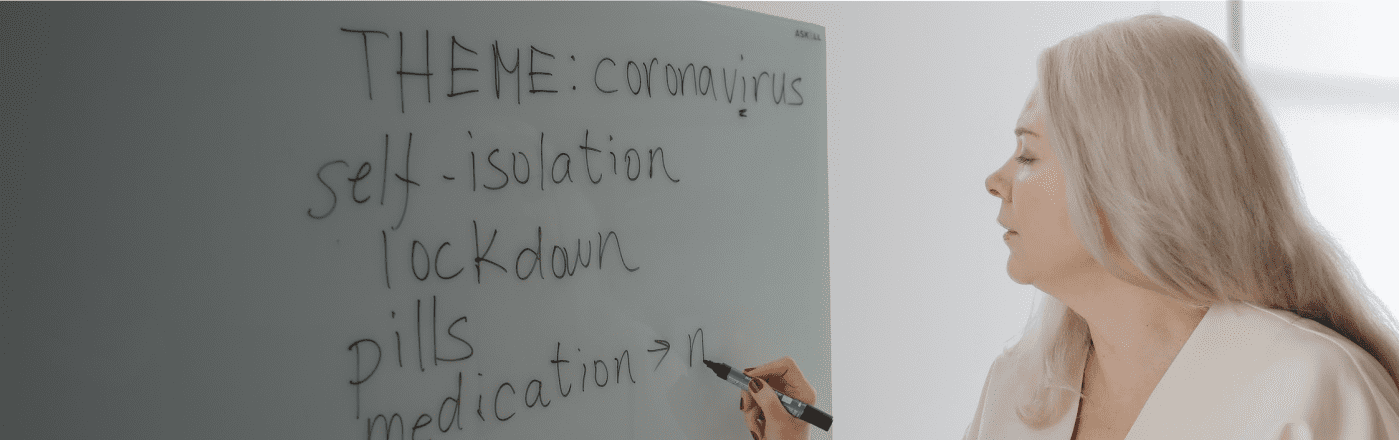 ASKELL
THEME: coronavirus
self-isolation
lockdown
pills
medication → n